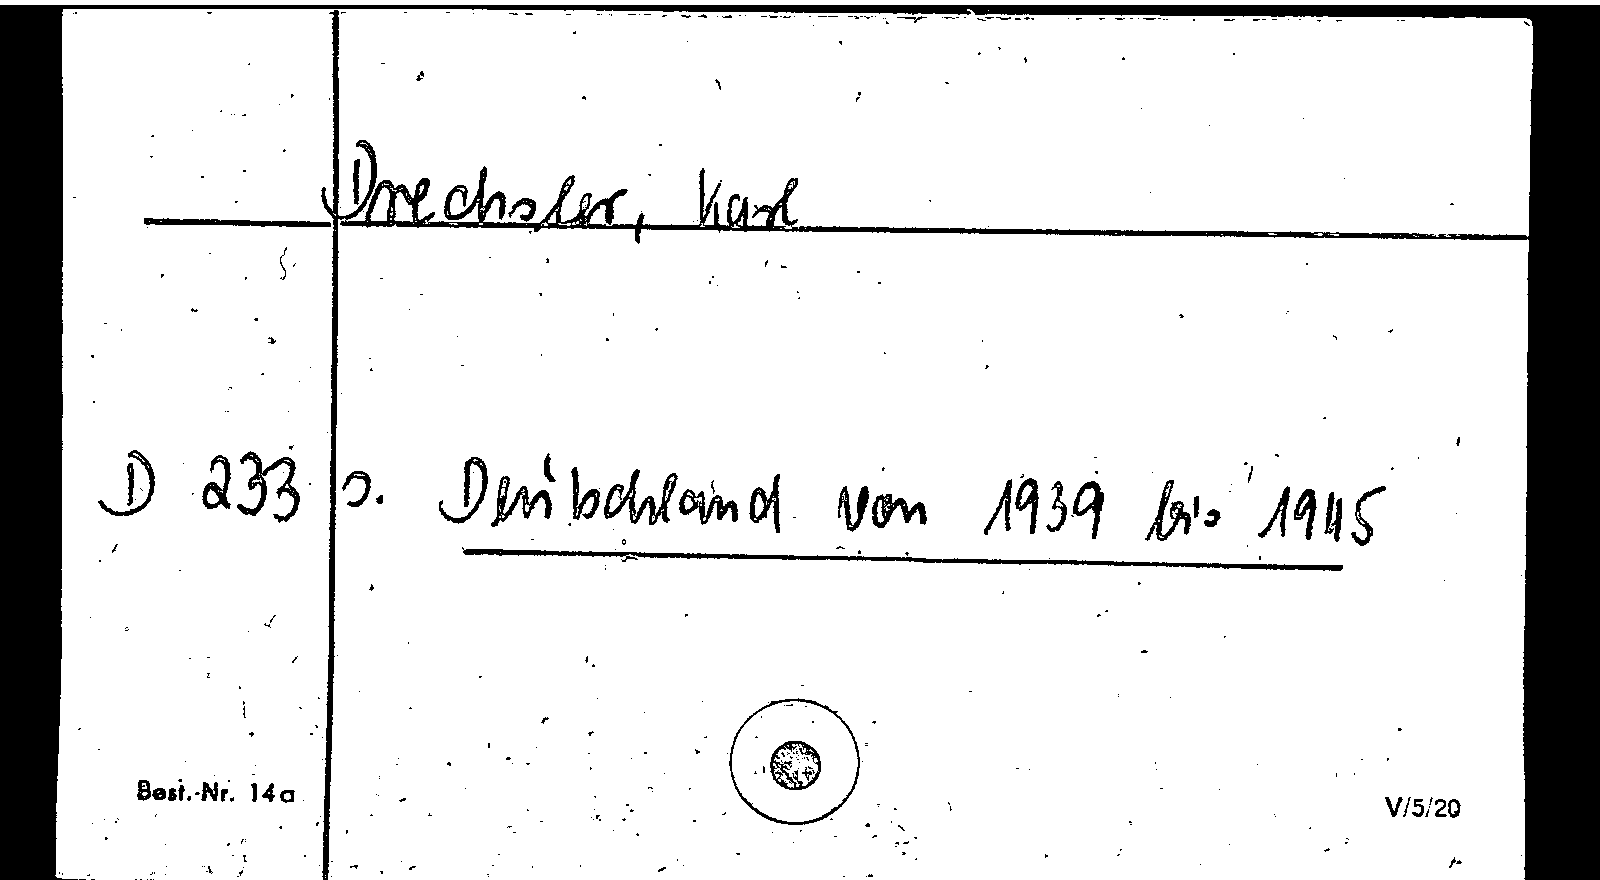 Drechsler, Karl
D 233 s. Deutschland von 1939 bis 1945
Best.-Nr. 14a
V/5/20